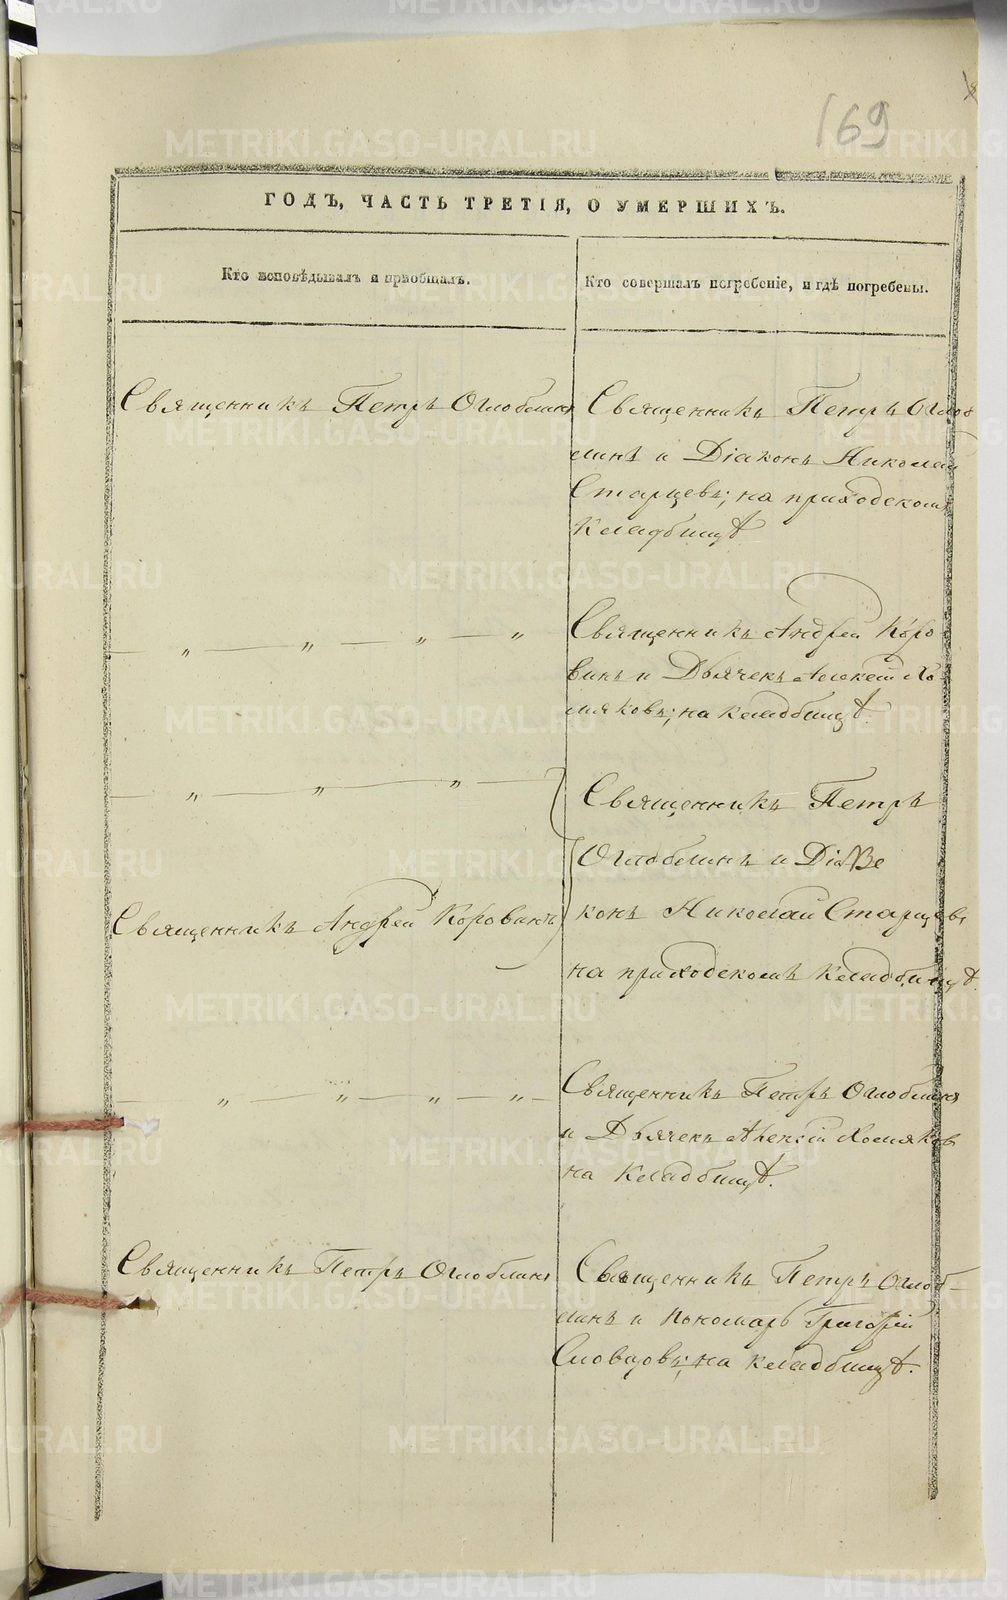 169
ГОДЪ, ЧАСТЬ ТРЕТІЯ, О УМЕРШИХЪ.
Кто исповѣдывалъ и пріобщалъ.
Кто совершалъ погребеніе, и гдѣ погребены.
Священникъ Петръ Оглоблинъ
Священникъ Петръ Оглоб
линъ и Діаконъ Николай
Старцевъ; на приходскомъ
кладбищѣ
— „ — „ — „ — „
Священникъ Андрей Коро
винъ и Дьячекъ Алексѣй Хо
мяковъ; на кладбищѣ.
— „ — „ — „ —
Священникъ Андрей Коровинъ
Священникъ Петръ
Оглоблинъ и Діа
конъ Николай Старцевъ,
на приходскомъ кладбищѣ.
— „ — „ — „ — „ —
Священникъ Петръ Оглоблинъ
и Дьячекъ Алексѣй Хомяков
на кладбищѣ.
Священникъ Петръ Оглоблинъ
Священникъ Петръ Оглоб-
линъ и Пономарь Григорій
Словцовъ; на кладбищѣ.
METRIKI.GASO-URAL.RU